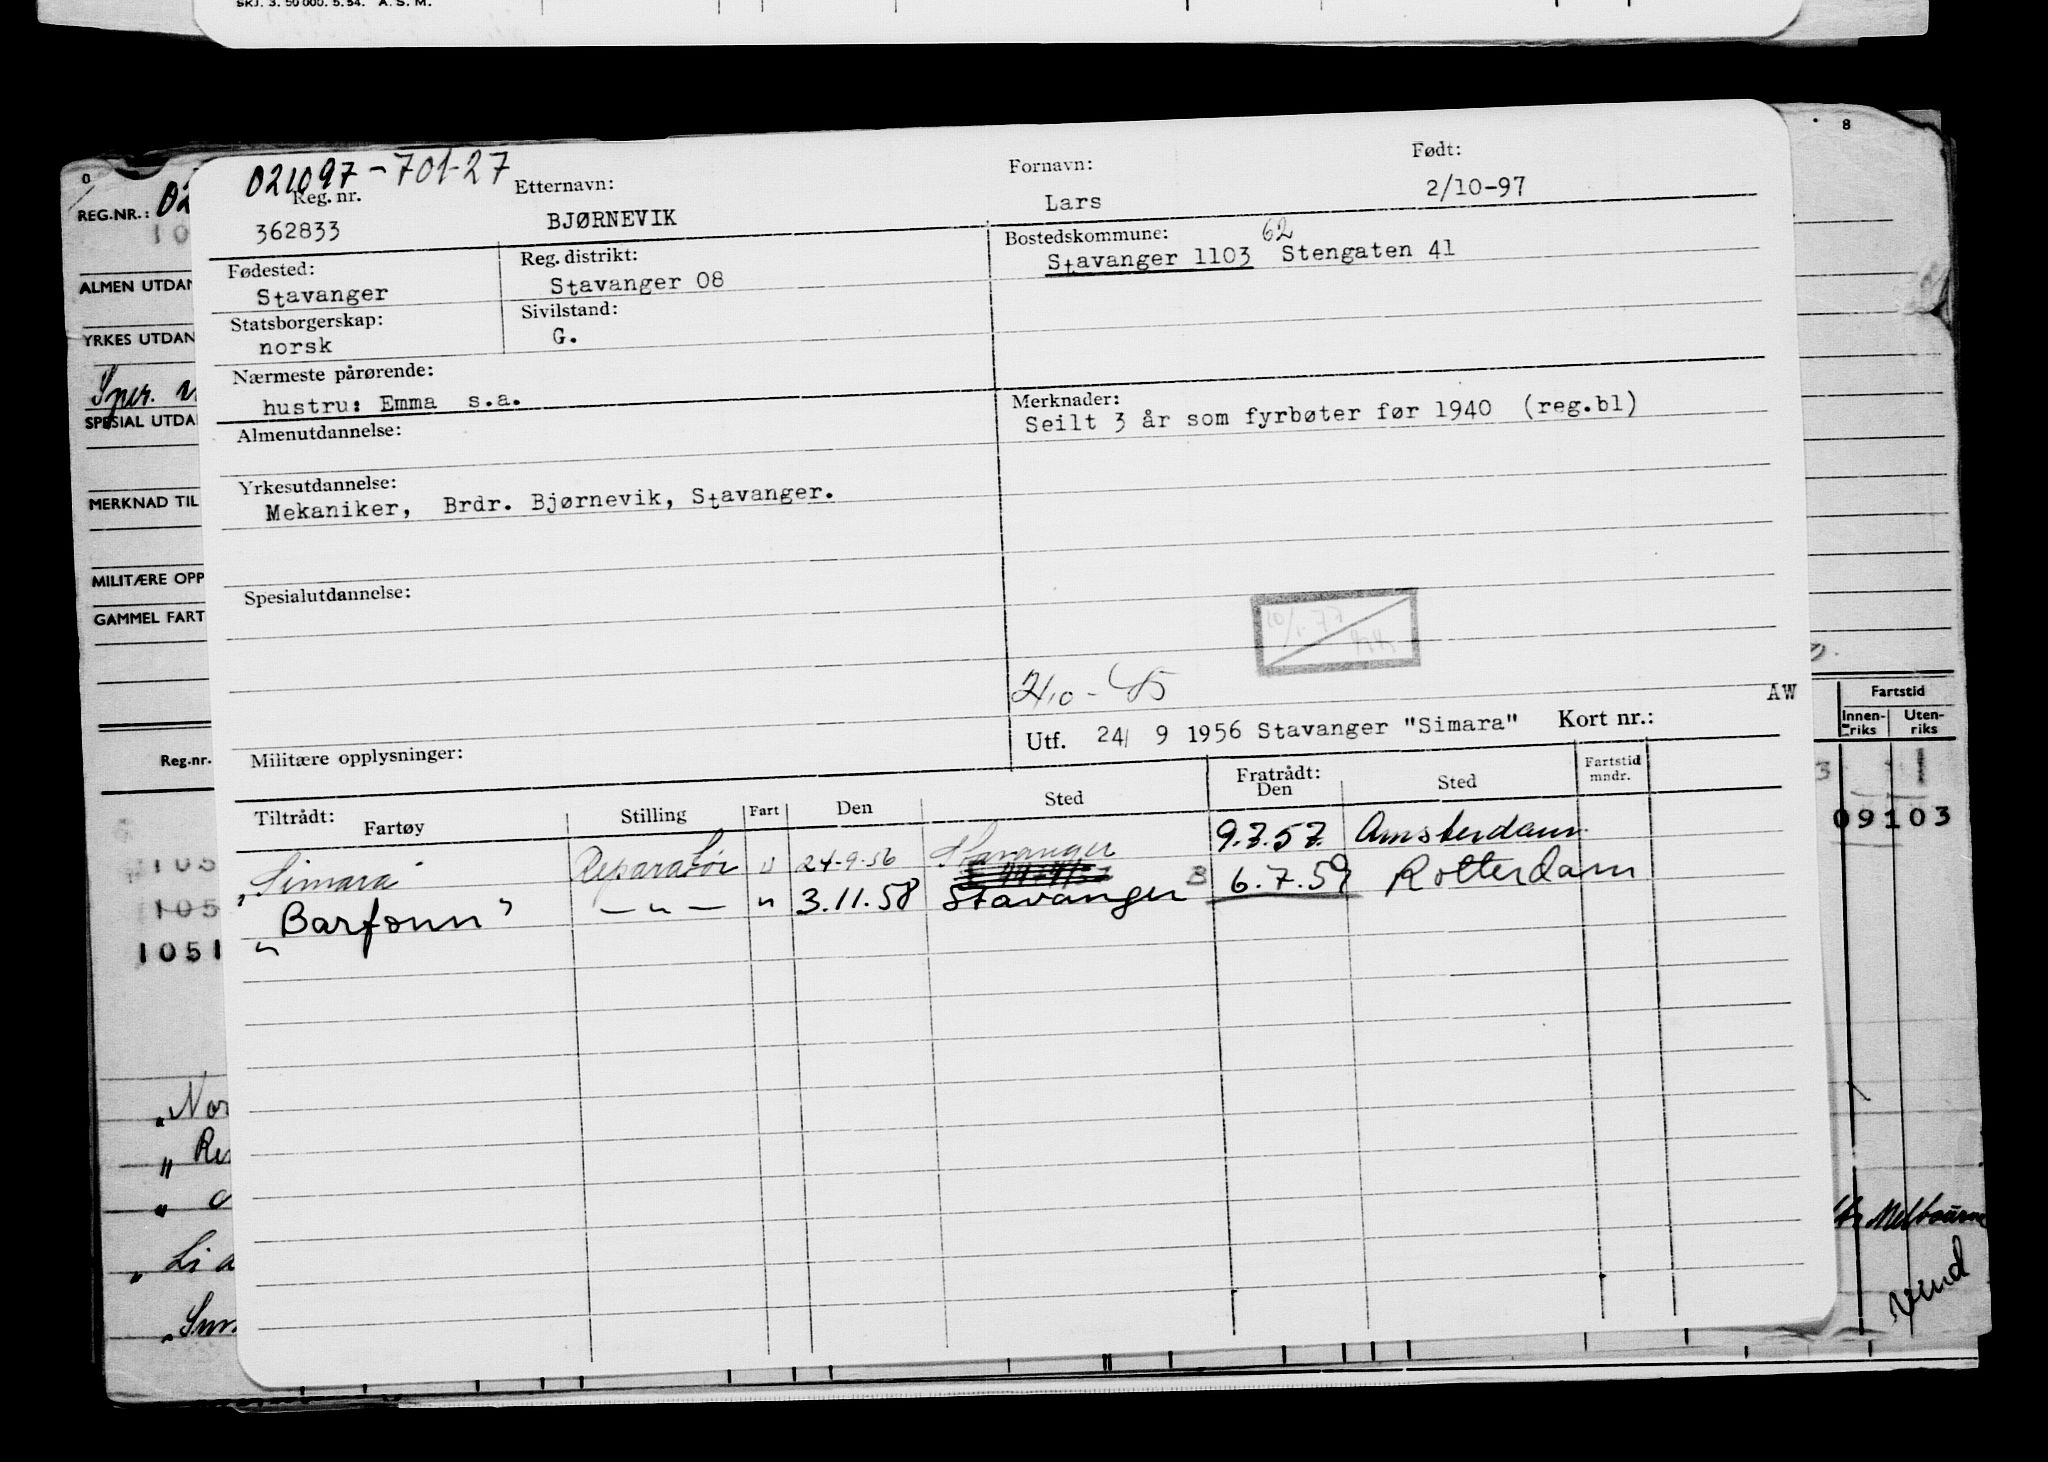 SKJ. 3. 50 000. 5. 54. A. S. M.
8
021097-701-27
Reg. nr. Etternavn: Fornavn: Født:
362833 BJØRNEVIK Lars 2/10-97
Fødested: Reg. distrikt: Bostedskommune: 62
Stavanger Stavanger 08 Stavanger 1103 Stengaten 41
Statsborgerskap: Sivilstand:
norsk G.
Nærmeste pårørende:
hustru: Emma s.a.
Merknader:
Seilt 3 år som fyrbøter før 1940 (reg.bl)
Almenutdannelse:
Yrkesutdannelse:
Mekaniker, Brdr. Bjørnevik, Stavanger.
Spesialutdannelse:
AW
Militære opplysninger: Utf. 24/ 9 1956 Stavanger "Simara" Kort nr.:
Tiltrådt: Fartøy Stilling Fart Den Sted Fratrådt: Den Sted Fartstid mndr.
"Simara Reparatør u 24-9-56 Stavanger 9.7.57. Amsterdam.
"Barfonn" — " — " 3.11.58 Stavanger B 6.7.59 Rotterdam
REG.NR.: 02
10
ALMEN UTDAN
YRKES UTDAN
Sper.
SPESIAL UTDA
MERKNAD TIL
MILITÆRE OPP
GAMMEL FART
Reg.nr.
105
105
1051
"Nor
" Re
"
" Li a
Fartstid
Innen-riks Uten-riks
3 1
09103
Melbourne
vend